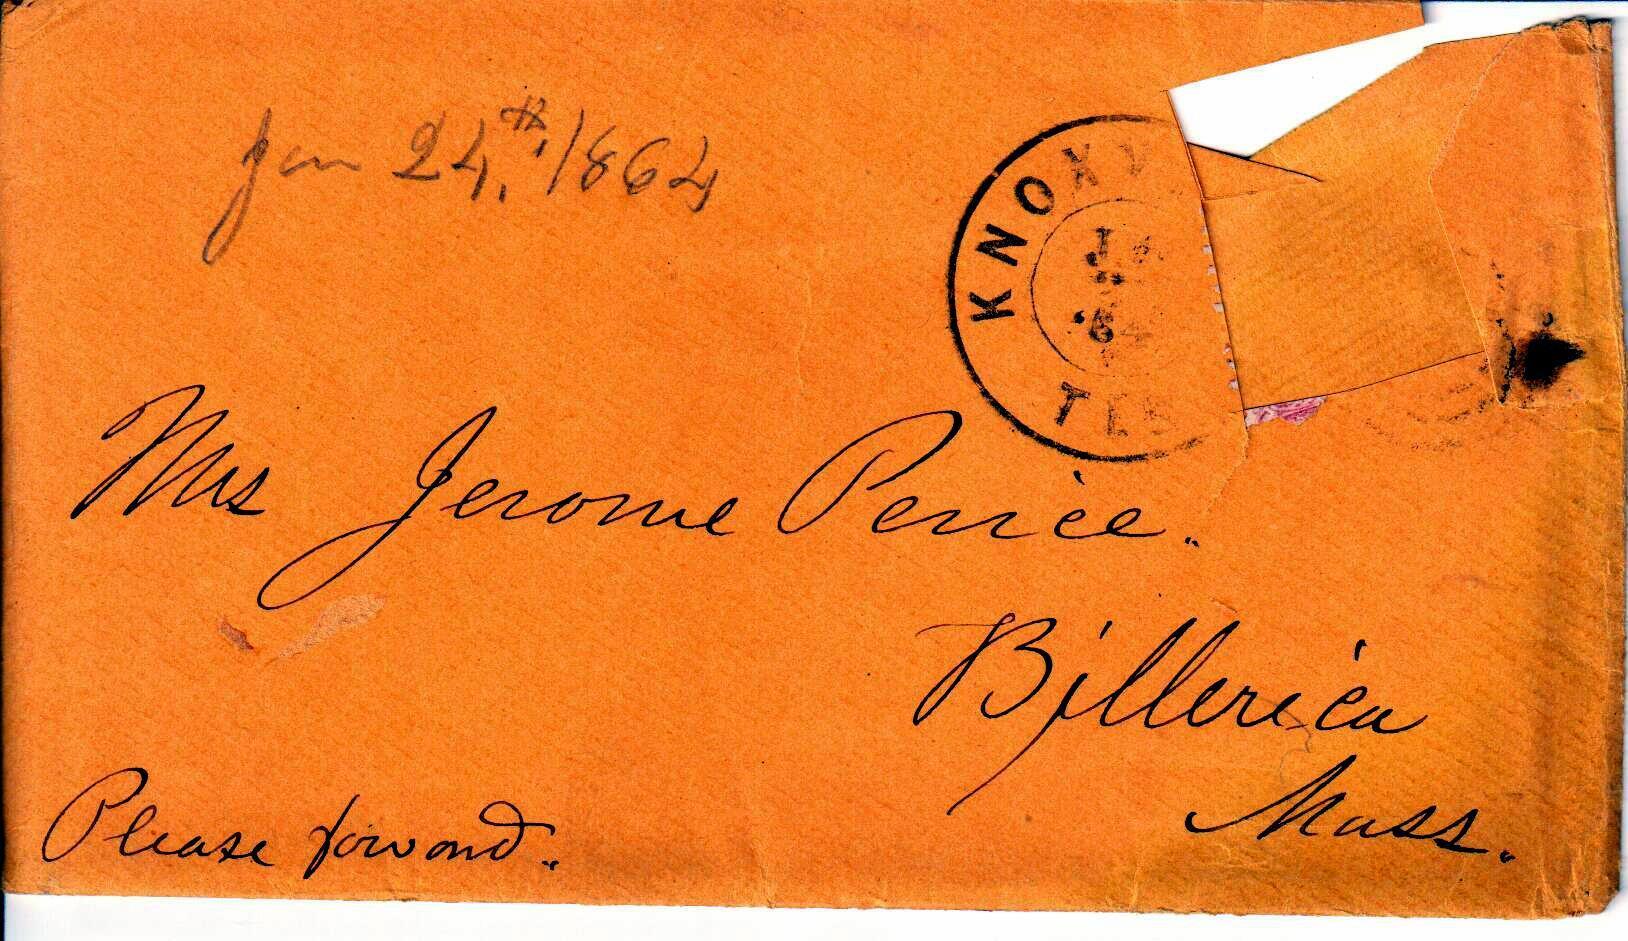 Jan 24,th, 1864
KNOXV
JA
'64
TEN
Mrs Jerome Peirce.
Billerica
Mass.
Please forward.